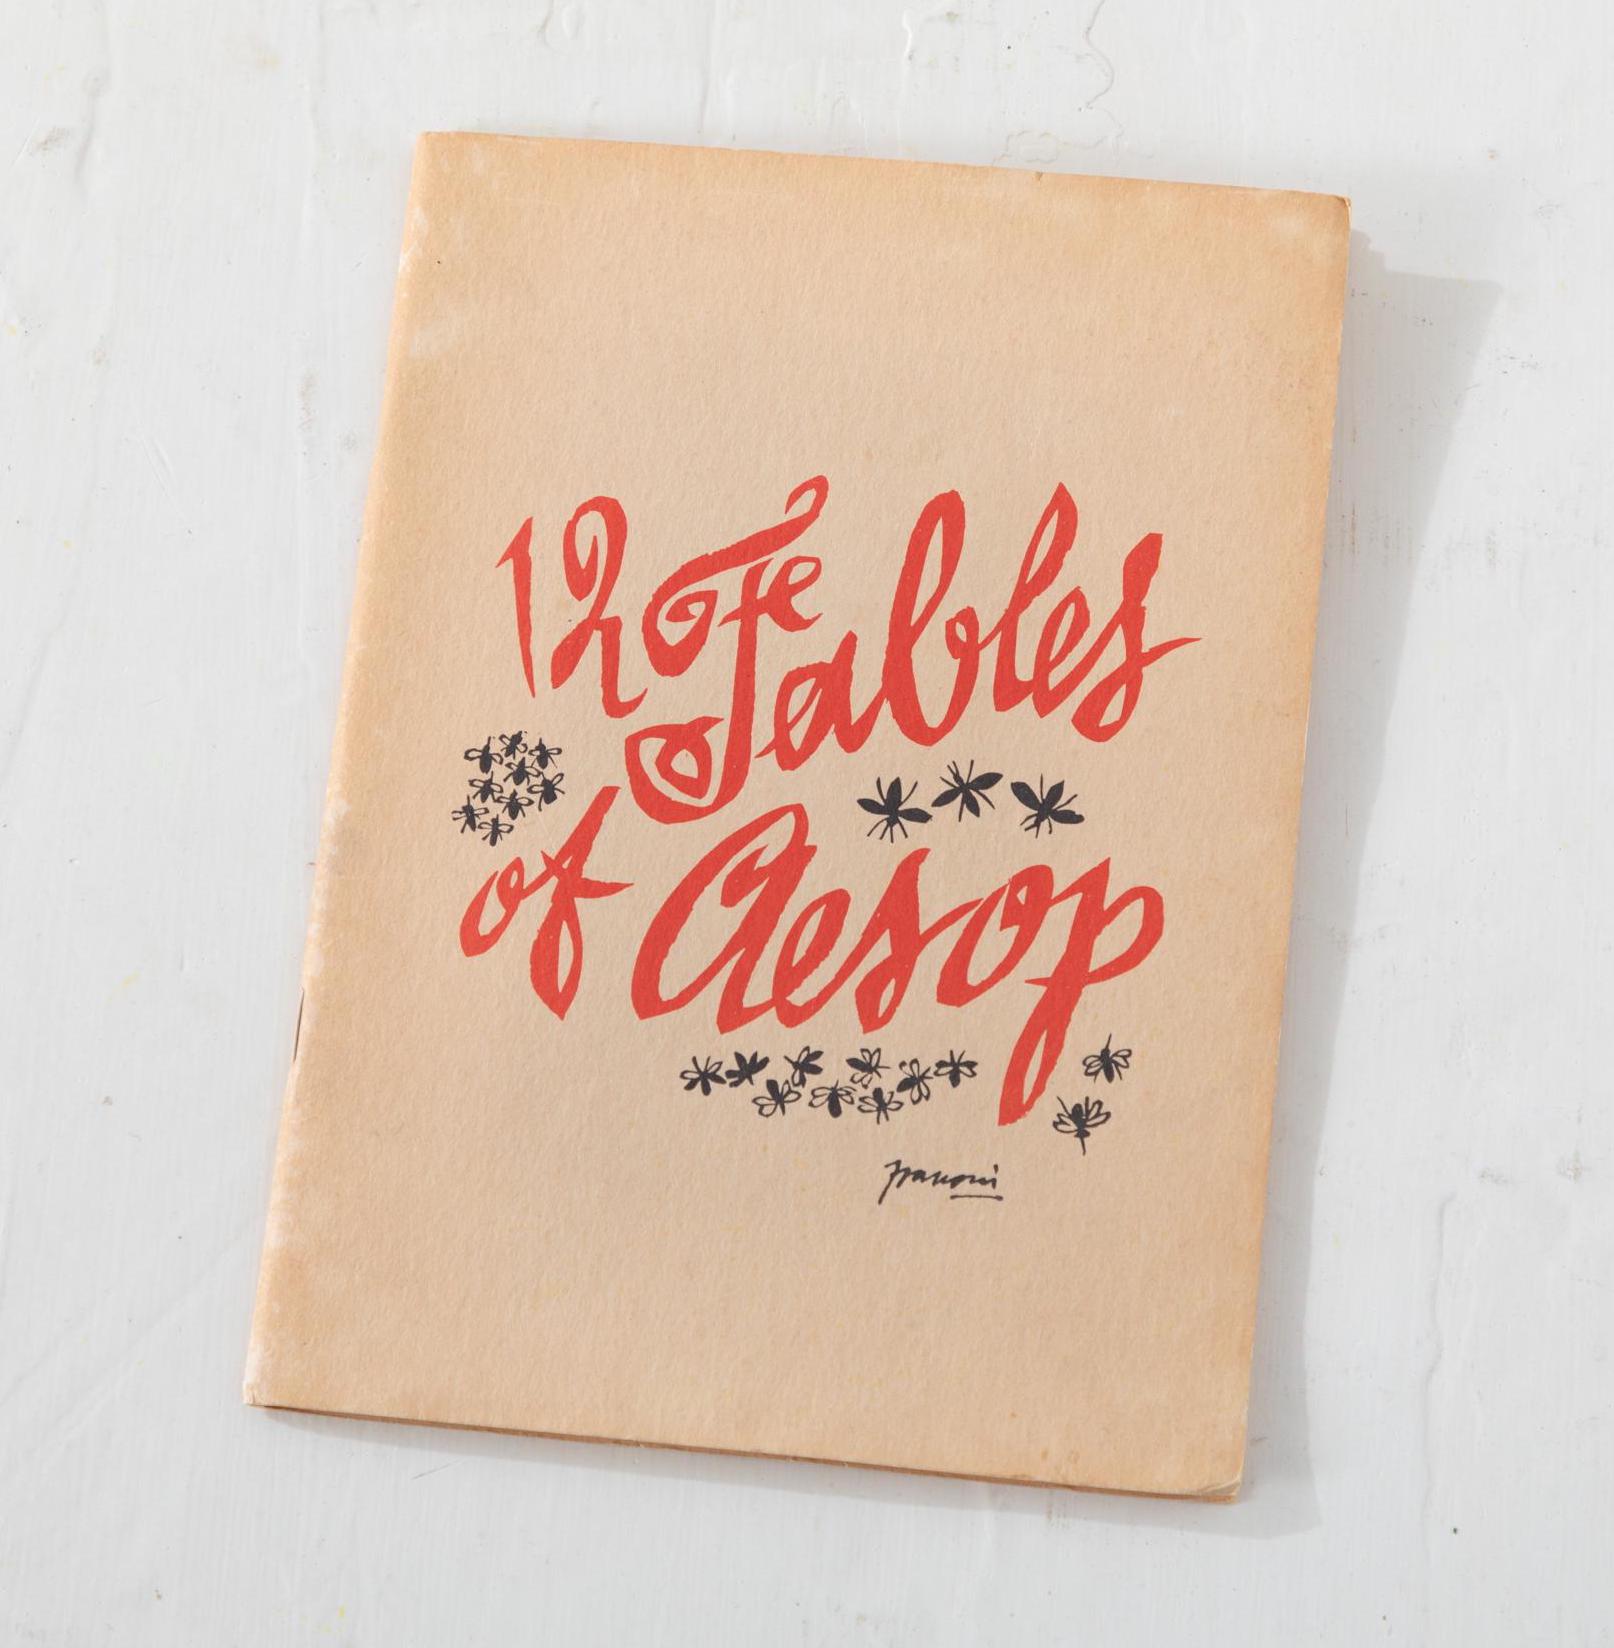 12 Fables
of Aesop
Frasconi